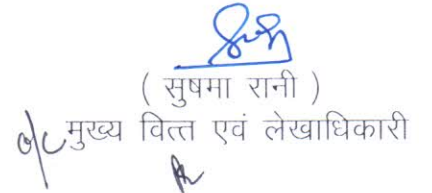 ( सुषमा रानी )
o/c मुख्य वित्त एवं लेखाधिकारी